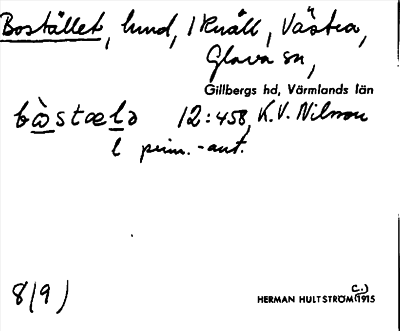 Bostället, hund, 1 Knåll, Västra,
Glava sn,
Gillbergs hd, Värmlands län
bòstælə 12:458, K.V. Nilsson
l prim.-aut.
8(9)
C.)
HERMAN HULTSTRÖM (1915